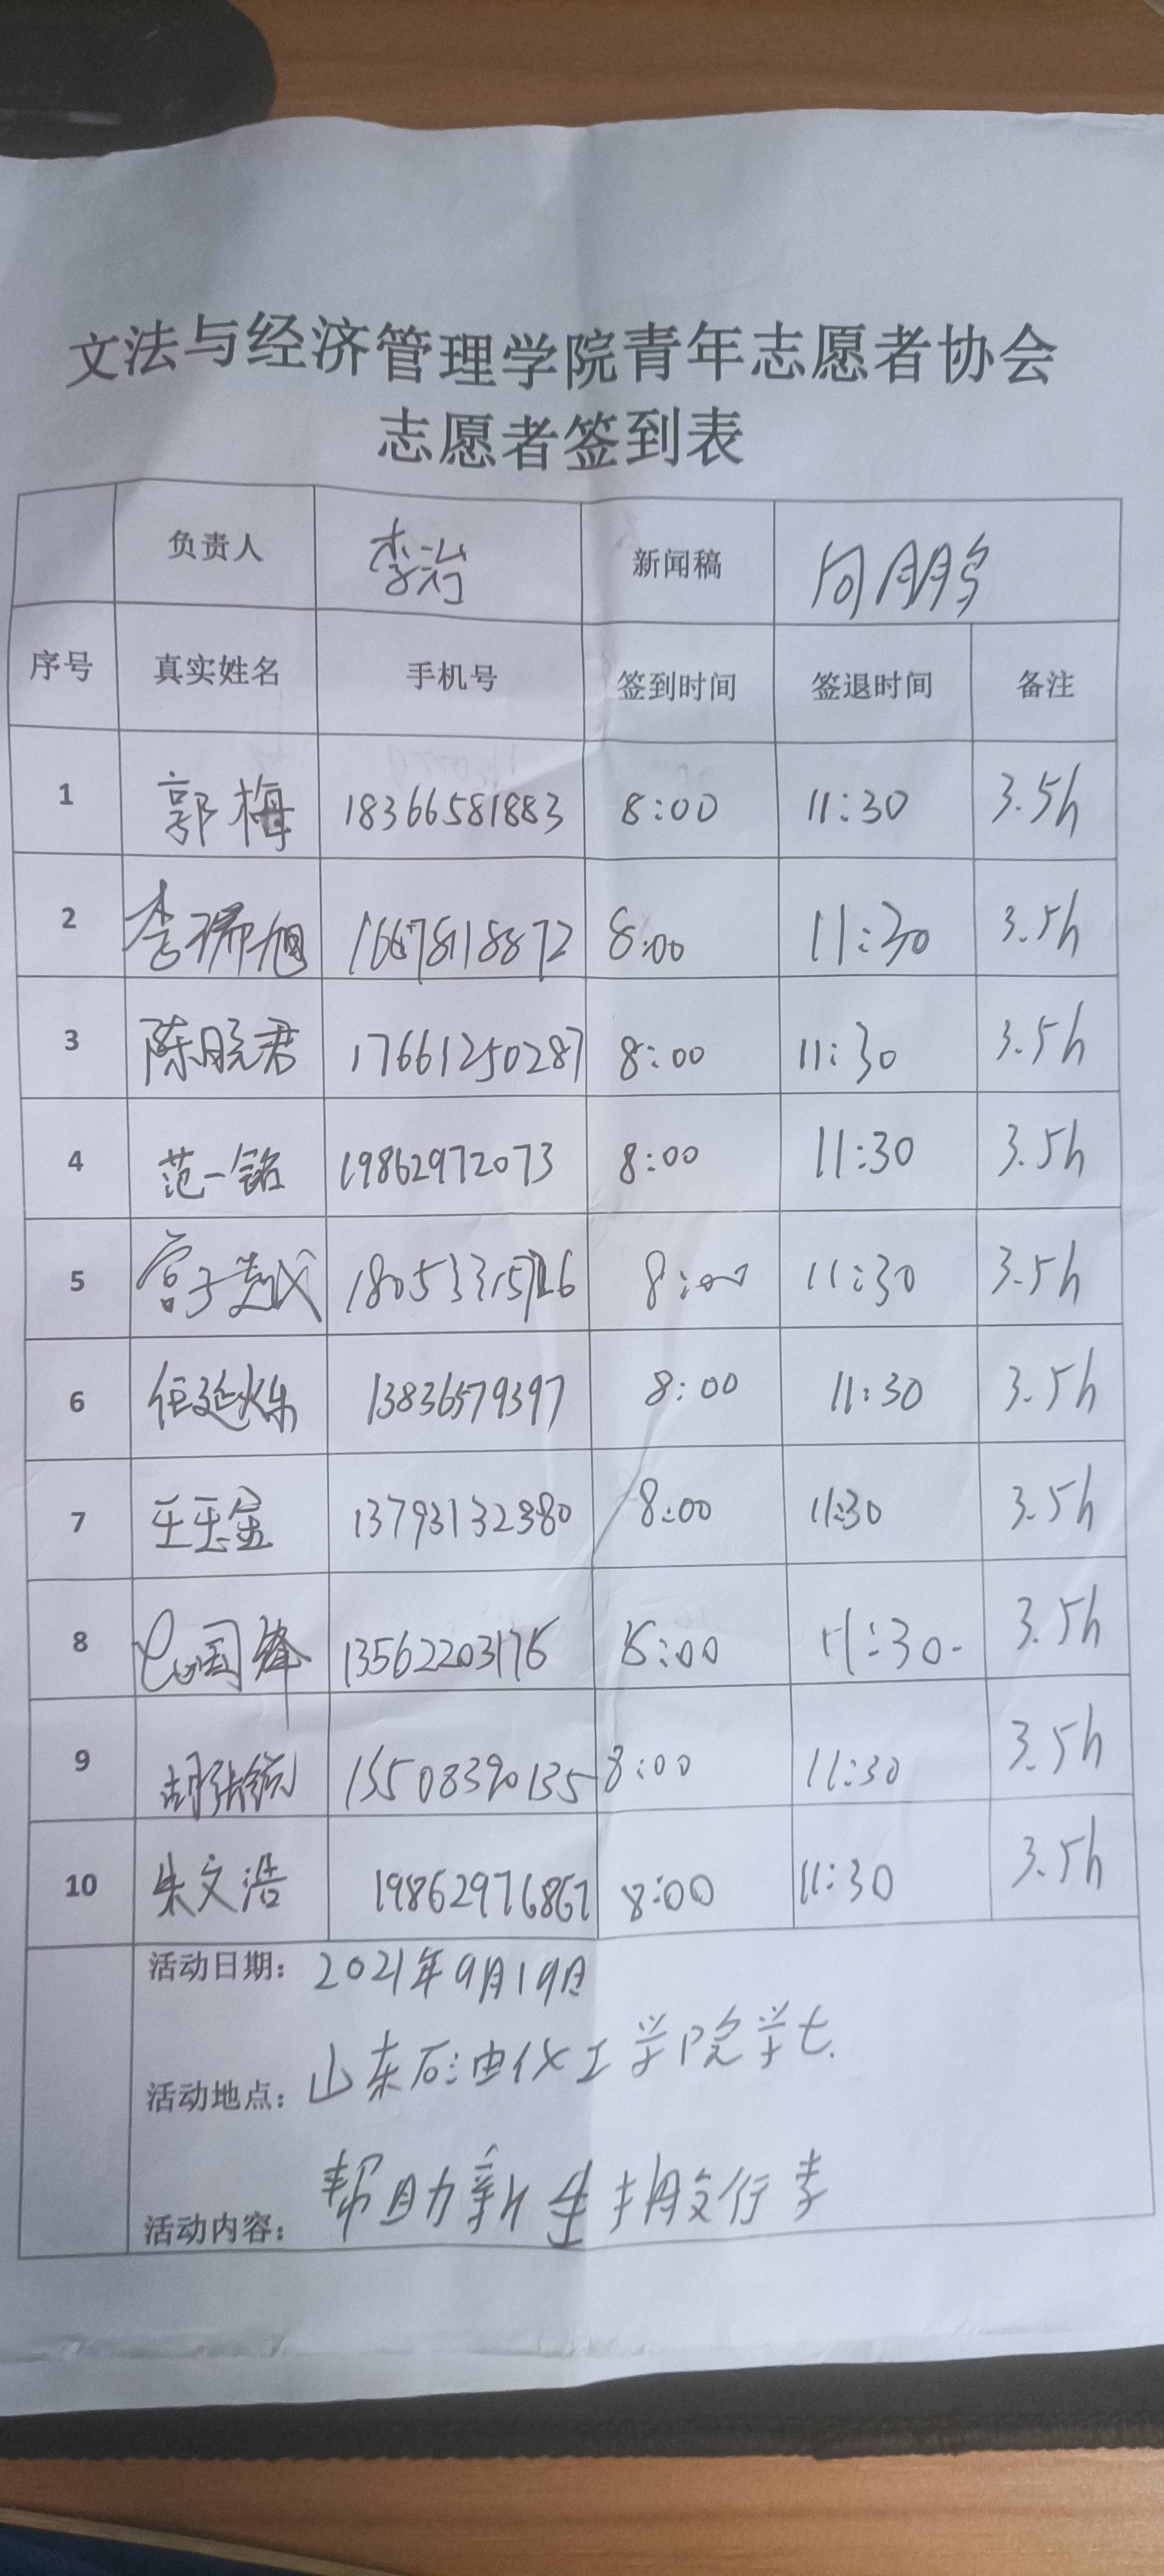 文法与经济管理学院青年志愿者协会
志愿者签到表
负责人 李治 新闻稿 向朋
序号 真实姓名 手机号 签到时间 签退时间 备注
1 郭梅 18366581883 8:00 11:30 3.5h
2 李瑞旭 16678118872 8:00 11:30 3.5h
3 陈晓君 17661250287 8:00 11:30 3.5h
4 范一铭 19862972073 8:00 11:30 3.5h
5 宫子越 8:00 11:30 3.5h
6 任延烁 13836579397 8:00 11:30 3.5h
7 王玉金 13793132380 8:00 11:30 3.5h
8 国锋 13562203176 8:00 11:30 3.5h
9 胡 13508390135 8:00 11:30 3.5h
10 朱文浩 19862976867 8:00 11:30 3.5h
活动日期: 2021年9月19日
活动地点: 山东石油化工学院学七
活动内容: 帮助新生搬行李